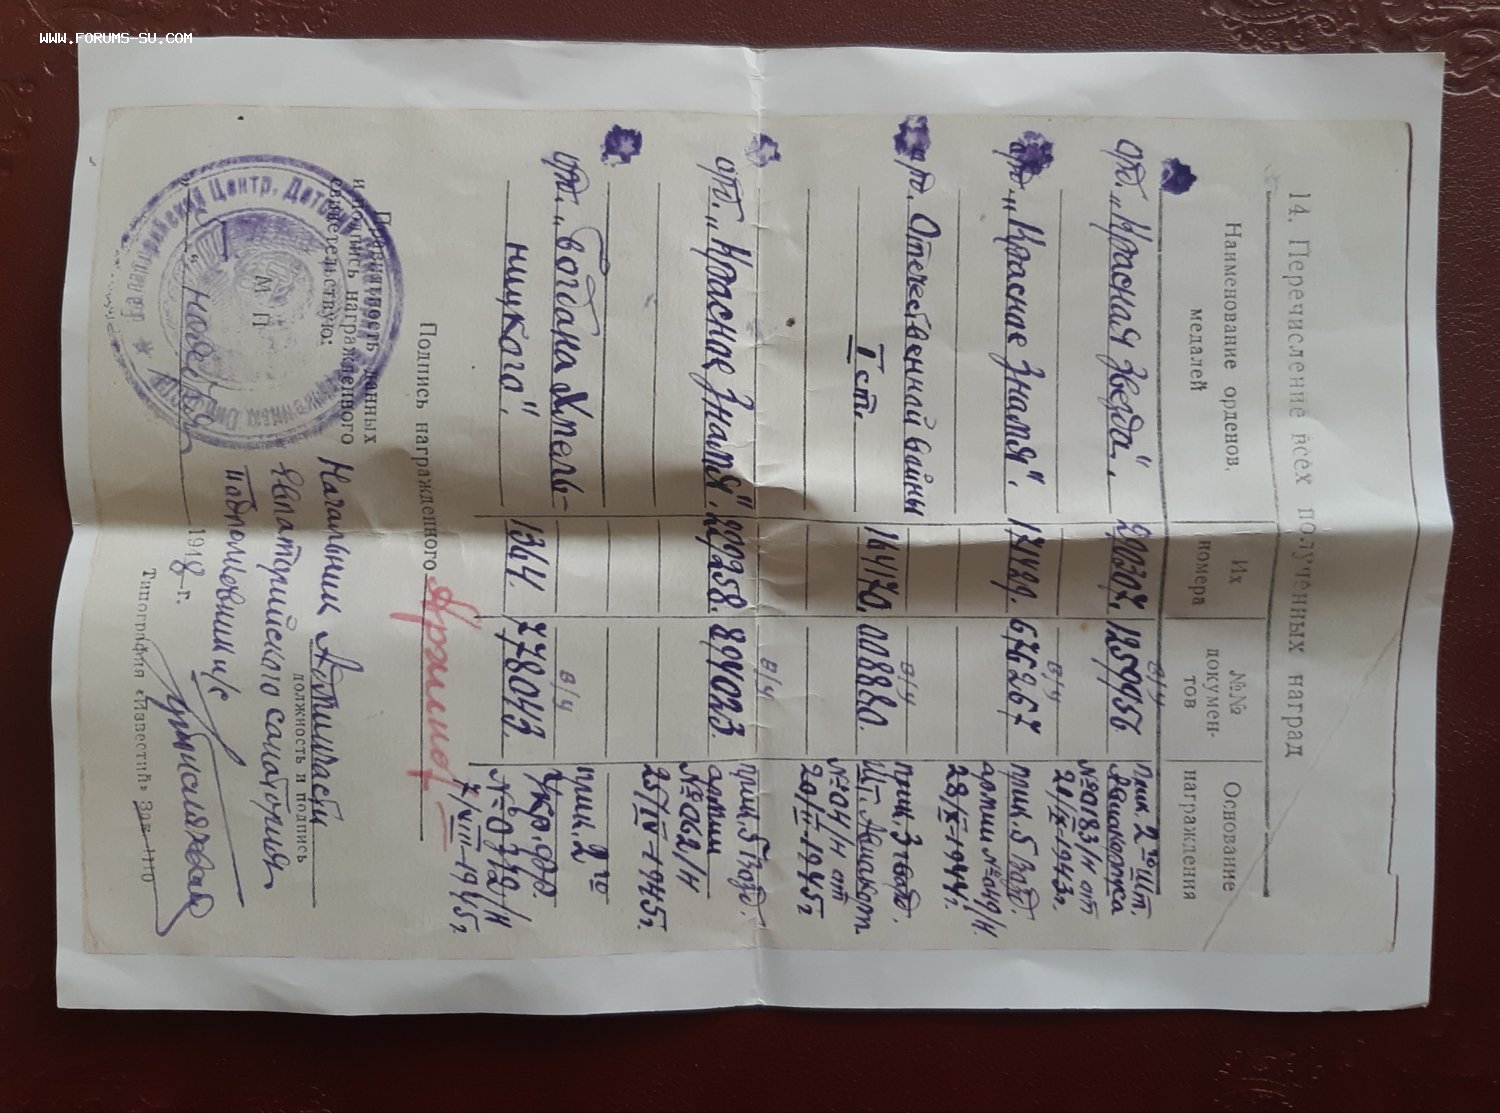 WWW.FORUMS-SU.COM
14. Перечисление всех полученных наград
Наименование орденов, медалей
Их номера
№№ документов
Основание награждения
орд. „Красная Звезда“.
200307.
в/ч
1259956
прик. 2го Шт. Авиакорпуса №0183/н от 21/IX-1943г.
орд. „Красное Знамя“.
171429.
в/ч
676267
прик. 5 возд. армии №049/н. 28/X-1944г.
орд. Отечественной войны
I ст.
164170.
в/ч
008880.
прик. 3 гвард. Шт. Авиакорп №04/н от 20/II-1945г
орд. „Красное Знамя“.
209258.
в/ч
894023.
прик. 5 возд. армии №062/н 25/IV-1945г.
орд. „Богдана Хмель-
ницкого“.
1344.
в/ч
778049.
прик. 2го Укр. фр. №0372/н 7/VIII-1945г
Подпись награжденного
Правильность данных
и подпись награжденного
свидетельствую:
М П
Начальник Адм. части
должность и подпись
Евпаторийского санатория
подполковник м/с
1948 г.
Типография «Известий» Зак. 1710